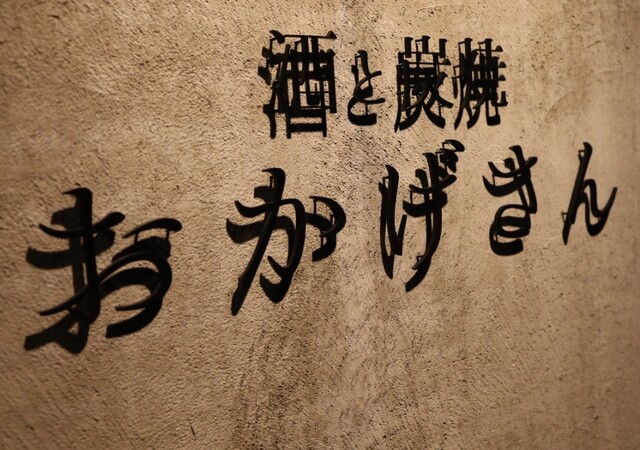 酒と炭焼
おかげさん